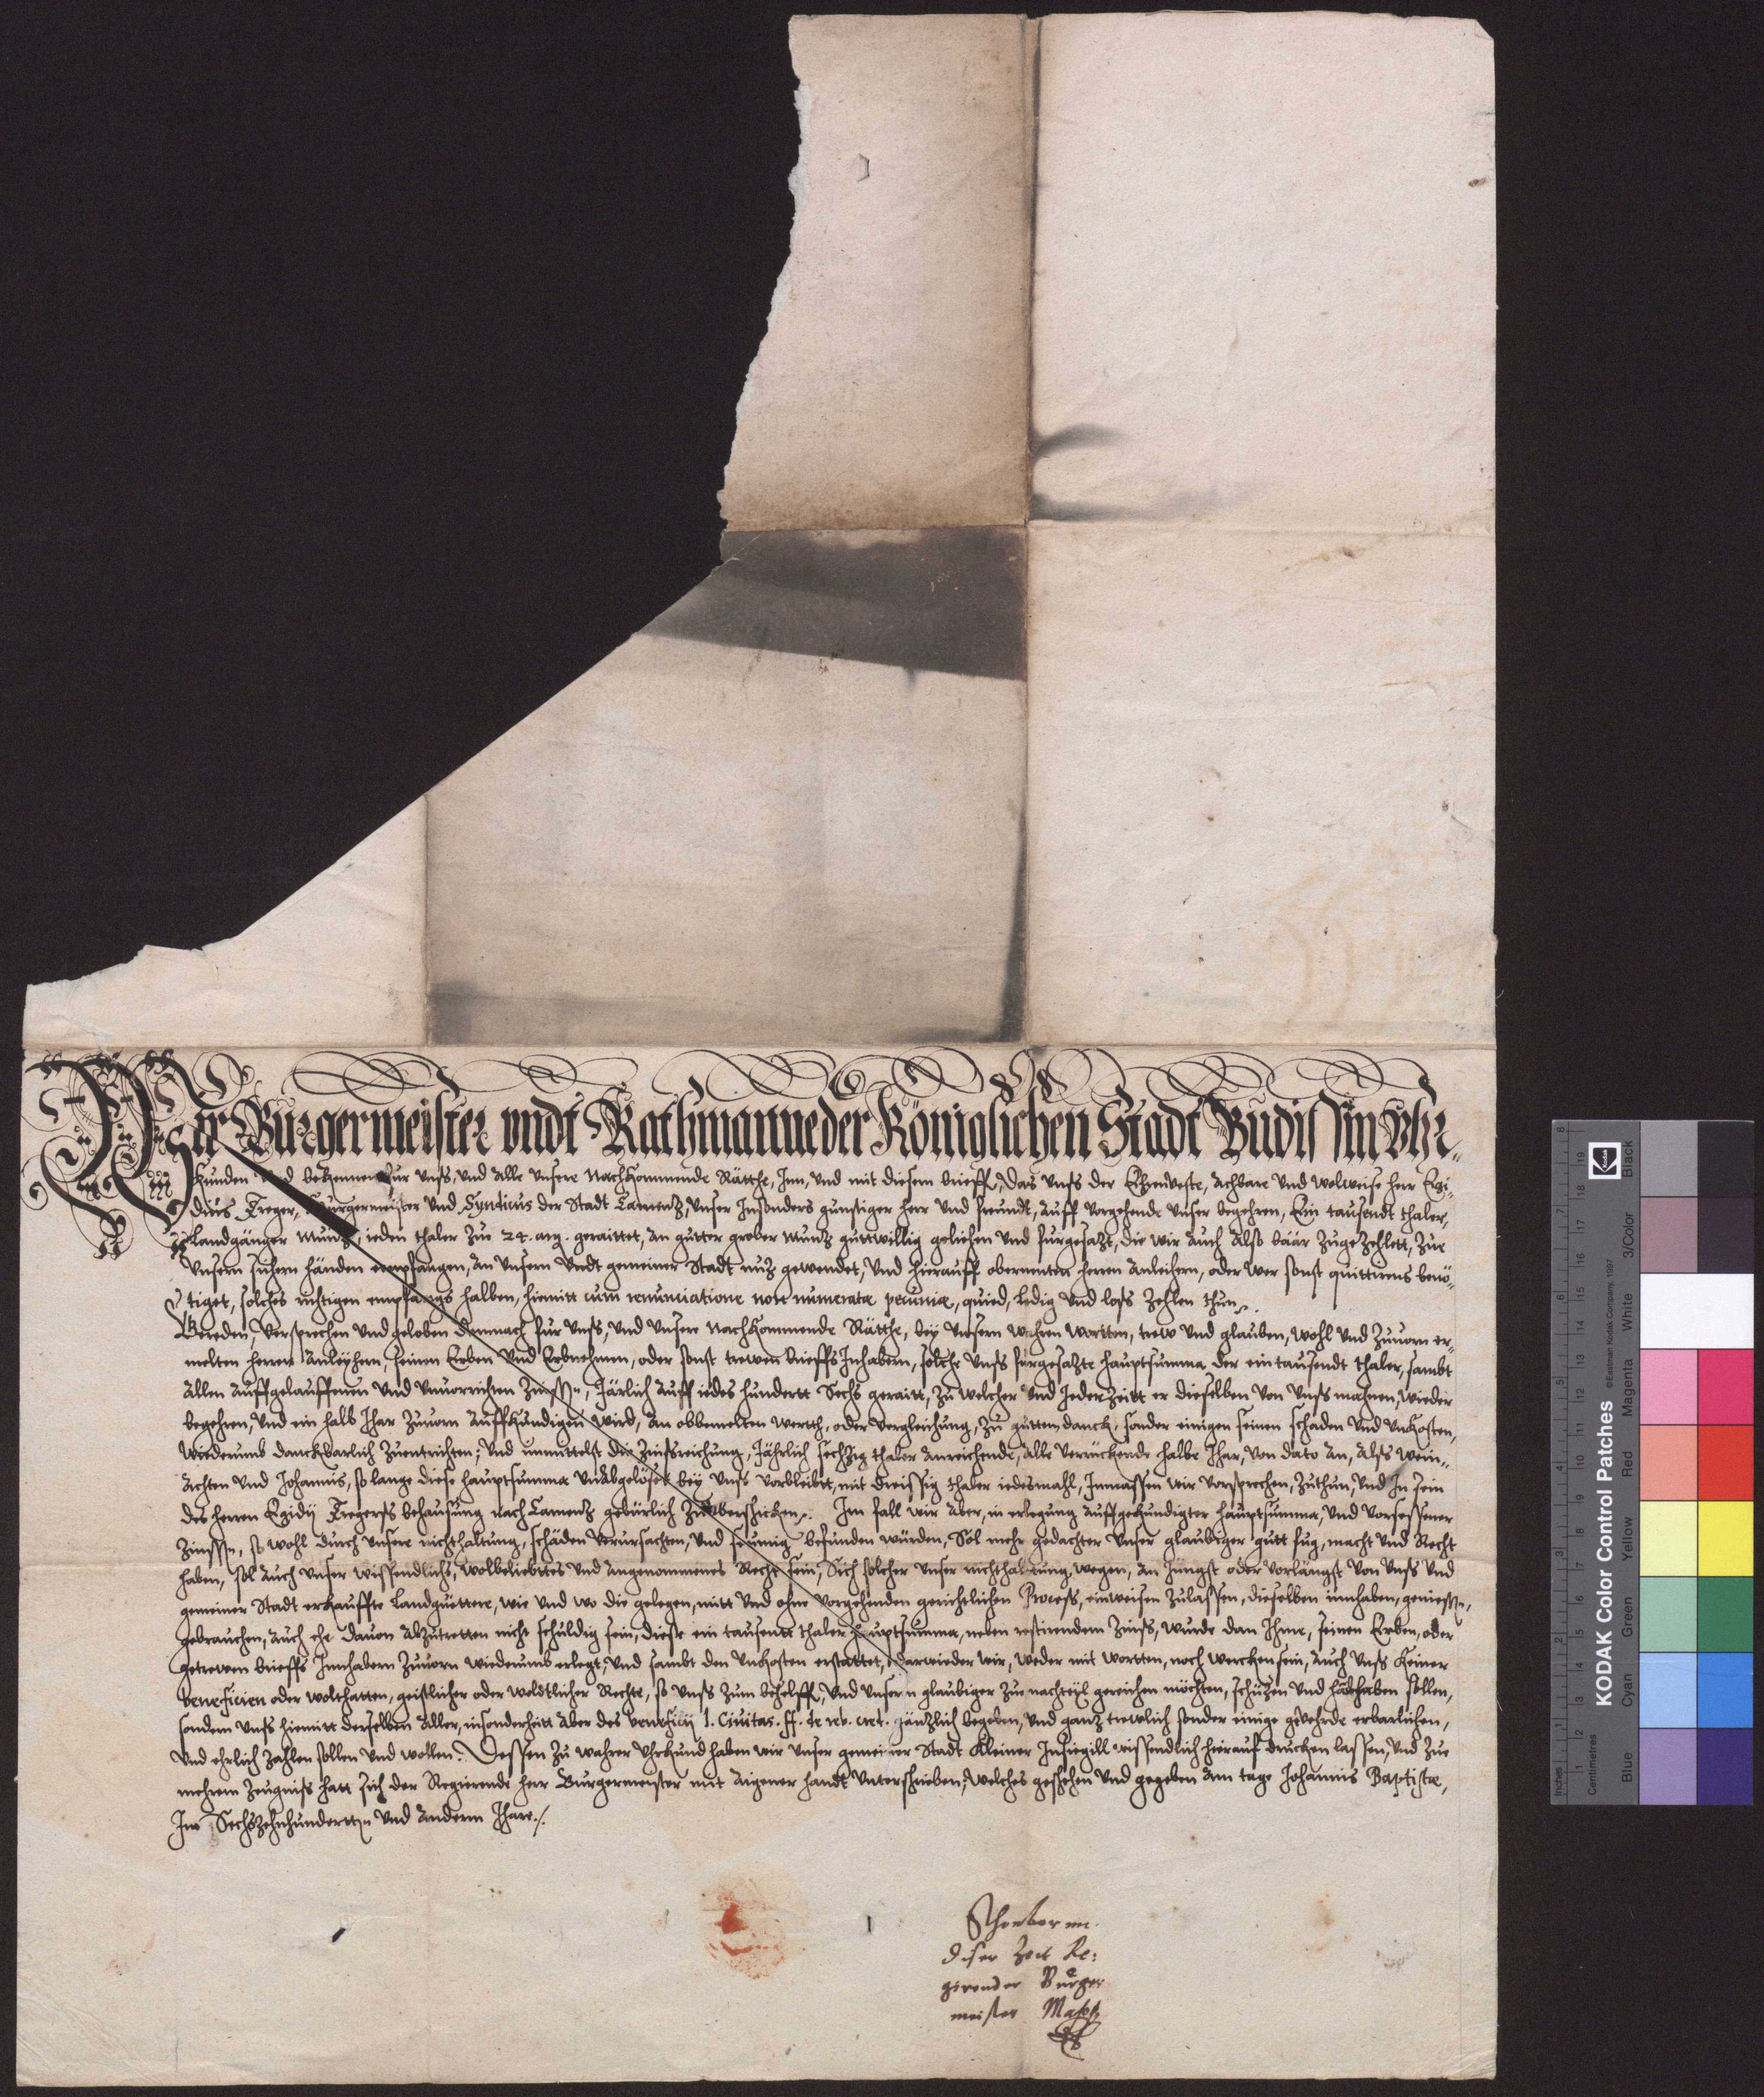 Wir Burgermeister vndt Rathmanne der Königlichen Stadt Budissin Vhr-
kunden Vnd bekennen fur Vnß, Vnd Alle Vnsere Nachkommende Räthe, Inn, Vnd mit diesem brieff, Das Vnß der Ehrnueste, Achbare Vnd Wolweise herr Egi-
dius Treger, Burgermeister Vnd Syndicus der Stadt Camentz, Vnser Insonders gunstiger herr Vnd freundt, Auff Vorgehende Vnser begehren, Ein tausendt thaler,
Landgänger Muntz, ieden thaler Zue 24. arg. geraittet, An gutter grober Muntz guttwillig geliehen Vnd furgesatzt, die wir Auch Alß baar Zugezehlett, Zue
Vnsern sichern händen empfangen, An Vnsern Vndt gemeiner Stadt nutz gewendet, Vnd hierauff obernenten herren Anleihern, oder wer sonst quittirens benö-
tiget, solches richtigen empfangs halben, hiemitt cum renunciatione non numeratæ pecuniæ, quied, ledig Vnd loß Zehlen thun.
Bereden, Versprechen Vnd geloben demnach fur Vnß, Vnd Vnsere Nachkommende Räthe, bey Vnsern wahren wortten, trew Vnd glauben, wohl Vnd Zuuorn er-
melten herren Anleyhern, seinen Erben Vnd Erbnehmen, oder sonst trewen brieffs Inhabern, solche Vnß furgesatzte hauptsumma der ein tausendt thaler, sambt
Allen Auffgelauffenen Vnd Vnuorrichten Zinssen, Järlich Auff iedes hundertt Sechs geraitt, Zu welcher Vnd Jederzeitt er dieselben Von Vnß mahnen, Wieder
begehren, Vnd ein halb Jhar Zuuorn Auffkundigen wird, An obbemelten wertth, oder Vergleichung, Zu guttem danck, sonder einigen seinen schaden Vnd Vnkosten,
Wiederumb danckbarlich Zuentrichten, Vnd vnmittelst die Zinßreichung, Jährlich sechzig thaler Anreichende, Alle Verruckende halbe Jhar, Von dato An, Alß Wein-
Achten Vnd Johannis, so lange diese hauptsumma Vnabgelöset bey Vnß Vorbleibtt, mit dreissig thaler iedesmahl, Inmassen wir Vorsprechen, Zuthun, Vnd In sein
des herren Egidÿ Tregerß behausung nach Camentz gebürlich Zuüberschicken. Im fall wir Aber, in erlegung Auffgekundigter hauptsumma, Vnd Vorsessener
Zinssen, so wohl durch Vnsere nichthaltung, schäden Verursachten, Vnd seumig befunden würden, Sol mehr gedachter Vnser glaubiger gutt fug, macht Vnd Recht
haben, sol Auch Vnser wissendlichs, Wolbeliebtes Vnd Angenommenes Recht sein, Sich solcher Vnser nichthaltung wegen, An Jüngst oder Vorlängst Von Vnß Vnd
gemeiner Stadt erkauffte Landguettere, wie Vnd wo die gelegen, mitt Vnd ohne Vorgehenden gerichtlichen Proceß, einweisen Zulassen, dieselben innhaben, geniessen,
gebrauchen, Auch ehe dauon Abzutretten nicht schuldig sein, diese ein tausentt thaler hauptsumma, neben restirendem Zinß, wurde dan Ihme, seinen Erben, oder
getrewen brieffs Innhabern Zuuorn wiederumb erlegt, Vnd sambt den Vnkosten erstattet, darwieder wir, weder mit wortten, noch wercken sein, Auch Vnß Keiner
beneficien oder wolthatten, geistlicher oder weldtlicher Rechte, so Vnß Zum behelff, Vnd Vnsern glaubiger Zue nachteil gereichen möchten, schützen Vnd handhaben sollen,
sondern Vnß hiemitt derselben Aller, insonderheitt Aber des beneficij l. Ciuitas. ff. de reb. cred. gäntzlich begeben, Vnd gantz trewlich sonder einige gefehrde erbarlichen,
Vnd ehrlich Zahlen sollen Vnd wollen. Dessen Zu wahrer Vhrkund haben wir Vnser gemeiner Stadt Kleiner Insiegill wissendlich hierauf drucken lassen, Vnd Zue
mehrem Zeugniß hatt sich der Regierende herr Burgermeister mit Aigener handt Vnterschrieben, Welches geschehen Vnd gegeben Am tage Johannis Baptistæ,
Im Sechszehnhundertten Vnd Anderm Jhare.
diser Zeit Re:
girender Burger
meister
KODAK Color Control Patches
©Eastman Kodak Company, 1997
Kodak
Inches
Centimetres
Blue Cyan Green Yellow Red Magenta White 3/Color Black